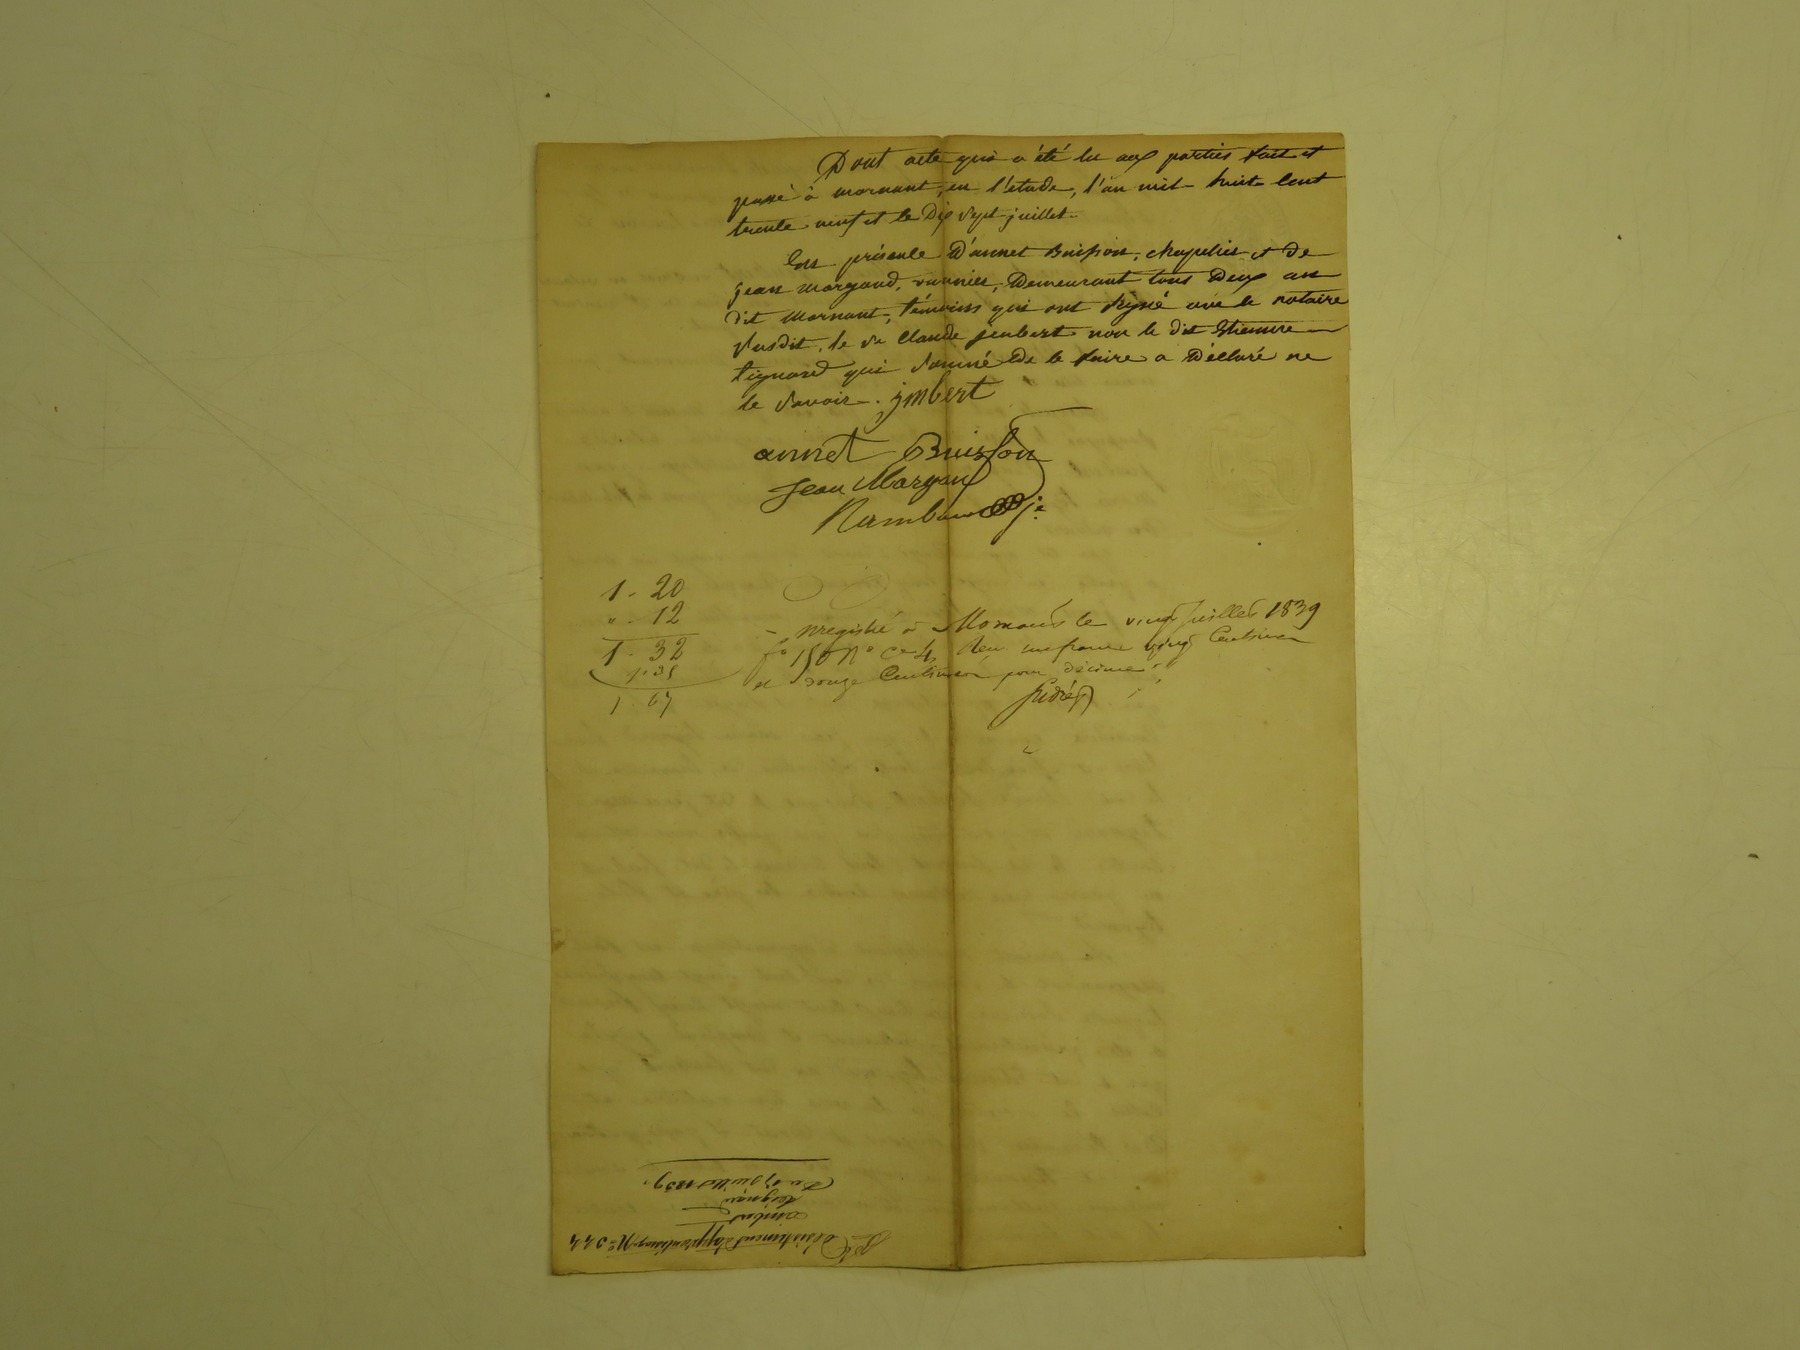 Dont acte qui a été lu aux parties fait et
passé à mornant, en l'étude, l'an mil huit cent
trente neuf et le Dix Sept juillet.
En présence D'annet Buisson, chapelier et de
jean margand, vannier, Demeurant tous Deux au
dit Mornant, témoins qui ont signé avec le notaire
susdit, le sr Claude jmbert non le dit Etienne
tignard qui sommé De le faire a Déclaré ne
le savoir. jmbert
annet Buisson
jean Margan
1 - 20
" - 12
1 - 32
1 - 35
1 - 67
Enregistré à Mornant le vingt juillet 1839
fo 150 No Ce 4, Reçu un franc vingt Centimes
et douze Centimes pour décime
Désistement d'apprentissage No
imbert
tignard
Du 17 juillet 1839.